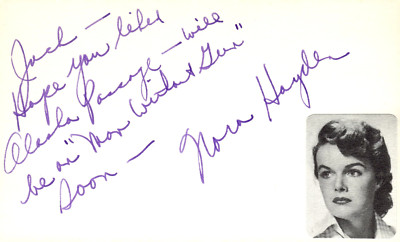 Jack —
Hope you liked
Alaska Passage — will
be on "Man Without Gun"
soon —
Nora Hayden